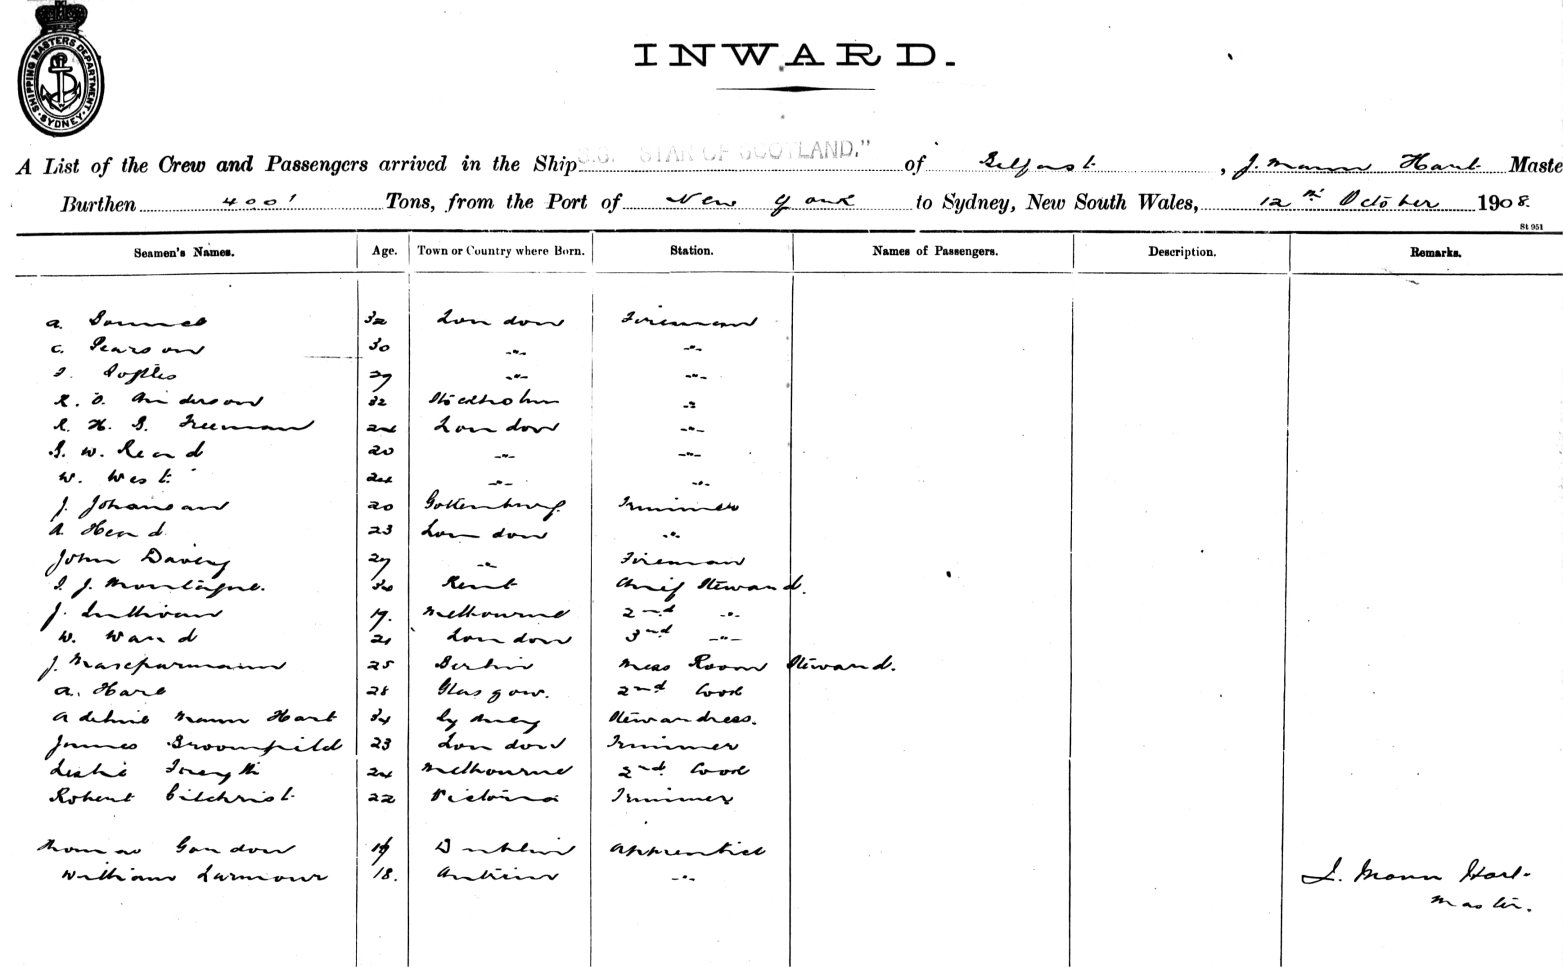 SHIPPING MASTERS DEPARTMENT
SYDNEY
INWARD.
A List of the Crew and Passengers arrived in the Ship S.S. "STAR OF SCOTLAND," of Belfast, J. Mann Hart Maste
Burthen 4001 Tons, from the Port of New York to Sydney, New South Wales, 12th October 1908.
St 951
Seamen's Names. Age. Town or Country where Born. Station. Names of Passengers. Description. Remarks.
A. 32 London Fireman
C. Pearson 30 -"- -"-
29 -"- -"-
R. O. Anderson 32 Stockholm -"
R. H. G. Freeman 24 London -"-
G. W. Read 20 -"- -"-
W. West 24 -"- -"-
J. Johanson 20 Gottenburg Trimmer
A. Head 23 London -"-
John Davey 29 -"- Fireman
J. Montague. 30 Kent Chief Steward.
J. Sullivan 19. Melbourne 2nd -"-
W. Ward 21 London 3rd -"-
J. 25 Berlin Mess Room Steward.
A. Hare 28 Glasgow. 2nd Cook
Adeline Mann Hart 34 Sydney Stewardess.
James Broomfield 23 London Trimmer
Leslie Forsyth 24 Melbourne 2nd Cook
Robert Gilchrist 22 Victoria Trimmer
Thomas Gordon Dublin Apprentice
William Larmour 18. Antrim -"- J. Mann Hart
Master.